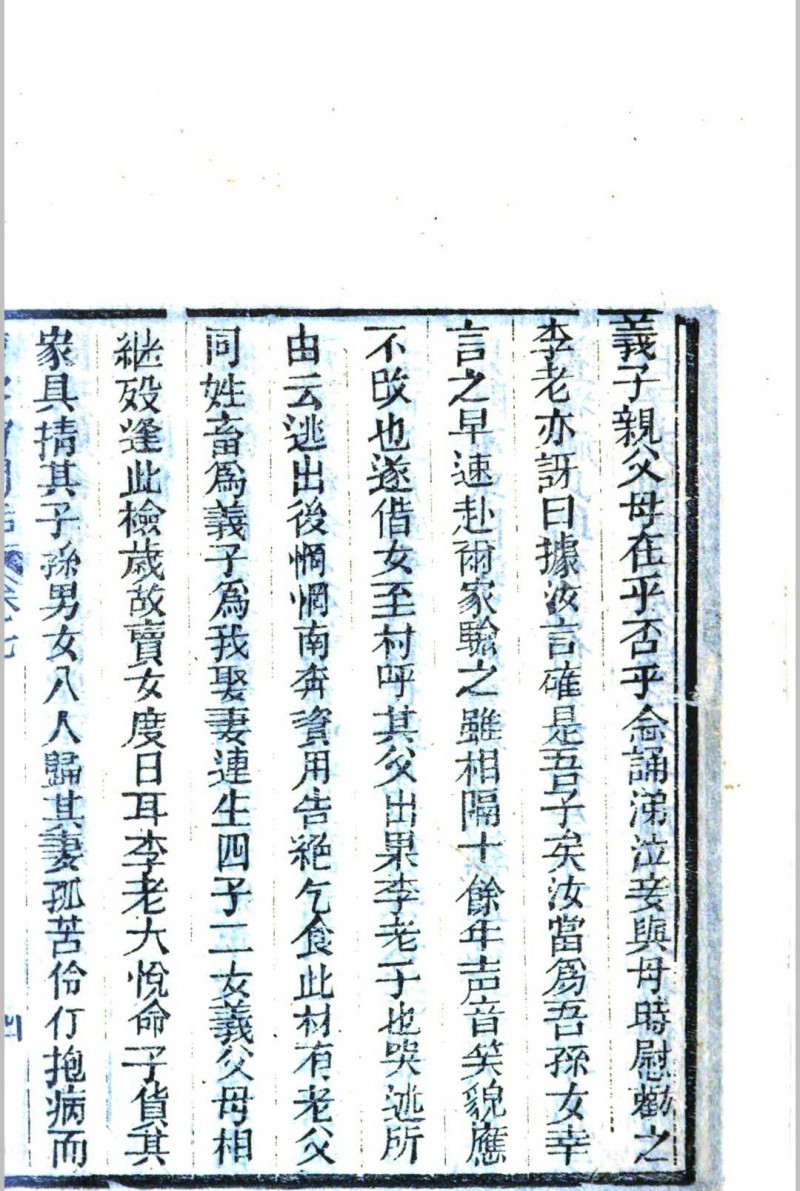 義子親父母在乎否乎念誦涕泣妾與母時慰勸之
李老亦訝曰據汝言確是吾子矣汝當爲吾孫女幸
言之早速赴爾家驗之雖相隔十餘年声音笑貌應
不改也遂偕女至村呼其父出果李老子也哭述所
由云逃出後惘惘南奔資用告絕乞食此村有老父
同姓畜爲義子爲我娶妻連生四子二女義父母相
継殁逢此檢歲故賣女度日耳李老大悅命子貨其
家具掅其子孫男女八人歸其妻孤苦伶仃抱病而